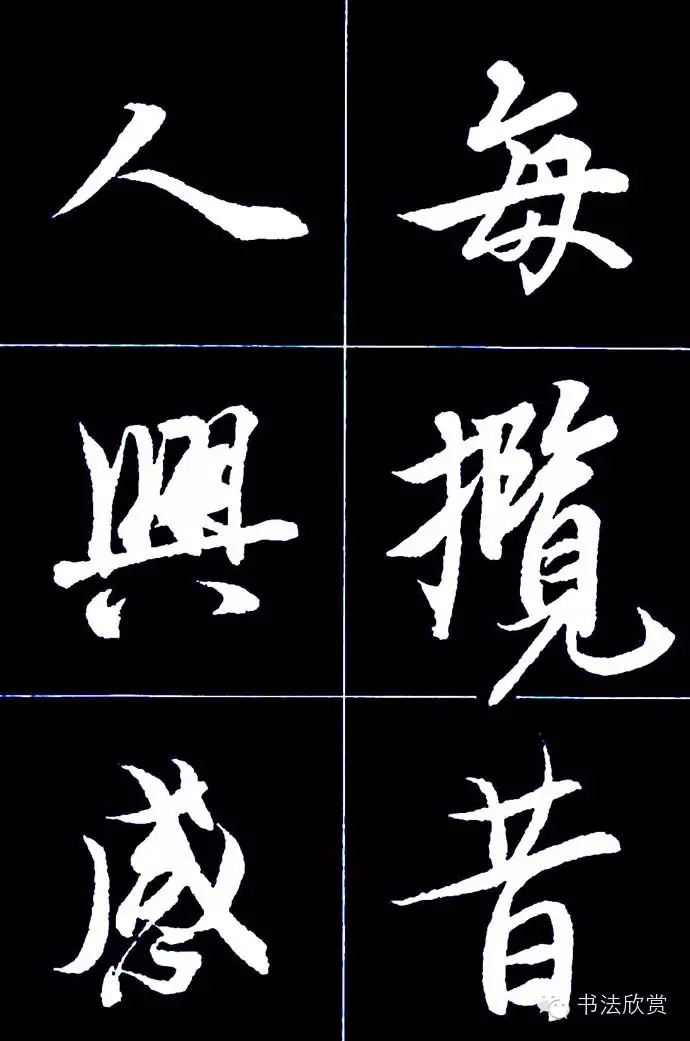 每攬昔
人興感
书法欣赏